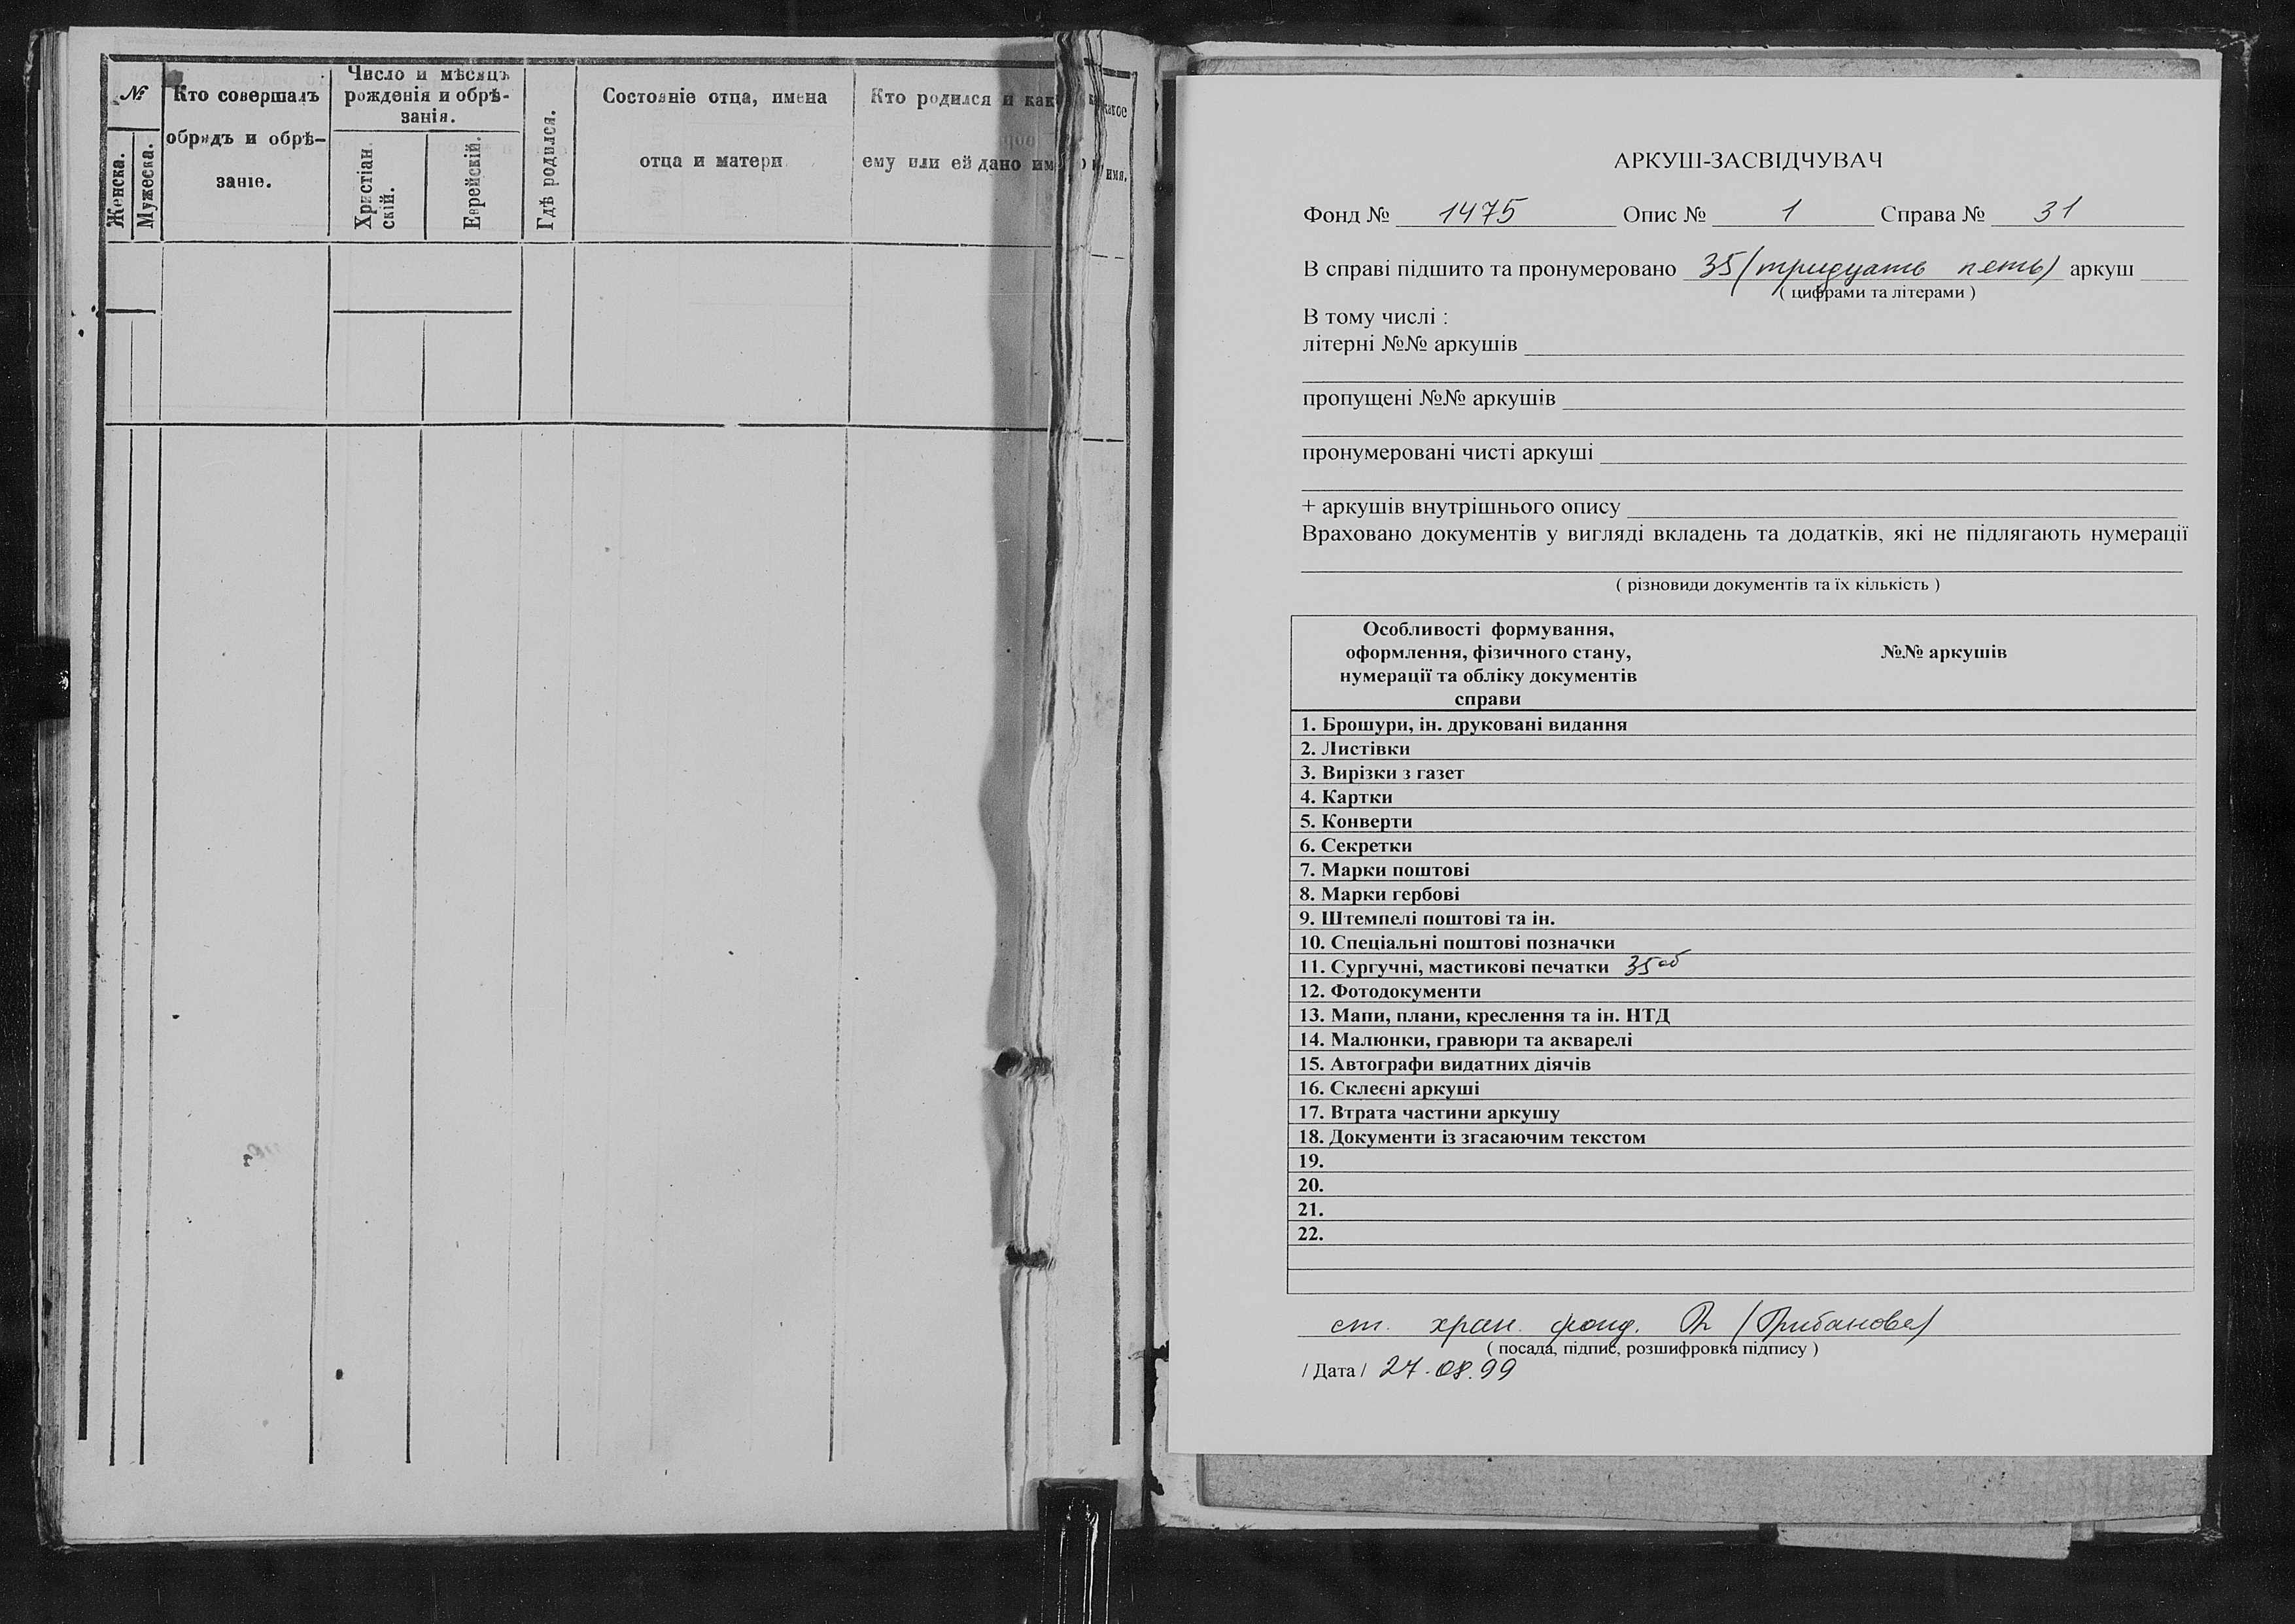 №
Женска.
Мужеска.
Кто совершалъ
обрядъ и обрѣ-
заніе.
Число и мѣсяцъ
рожденія и обрѣ-
занія.
Христіан
скій.
Еврейскій.
Гдѣ родился.
Состояніе отца, имена
отца и матери
Кто родился и как
ему или ей дано им
какое
имя.
АРКУШ-ЗАСВІДЧУВАЧ
Фонд № 1475 Опис № 1 Справа № 31
В справі підшито та пронумеровано 35 (тридцать пять) аркуш
( цифрами та літерами )
В тому числі :
літерні №№ аркушів
пропущені №№ аркушів
пронумеровані чисті аркуші
+ аркушів внутрішнього опису
Враховано документів у вигляді вкладень та додатків, які не підлягають нумерації
( різновиди документів та їх кількість )
Особливості формування,
оформлення, фізичного стану,
нумерації та обліку документів
справи
№№ аркушів
1. Брошури, ін. друковані видання
2. Листівки
3. Вирізки з газет
4. Картки
5. Конверти
6. Секретки
7. Марки поштові
8. Марки гербові
9. Штемпелі поштові та ін.
10. Спеціальні поштові позначки
11. Сургучні, мастикові печатки 35об
12. Фотодокументи
13. Мапи, плани, креслення та ін. НТД
14. Малюнки, гравюри та акварелі
15. Автографи видатних діячів
16. Склеєні аркуші
17. Втрата частини аркушу
18. Документи із згасаючим текстом
19.
20.
21.
22.
ст. хран. фонд.
( посада, підпис, розшифровка підпису )
/ Дата / 27.08.99